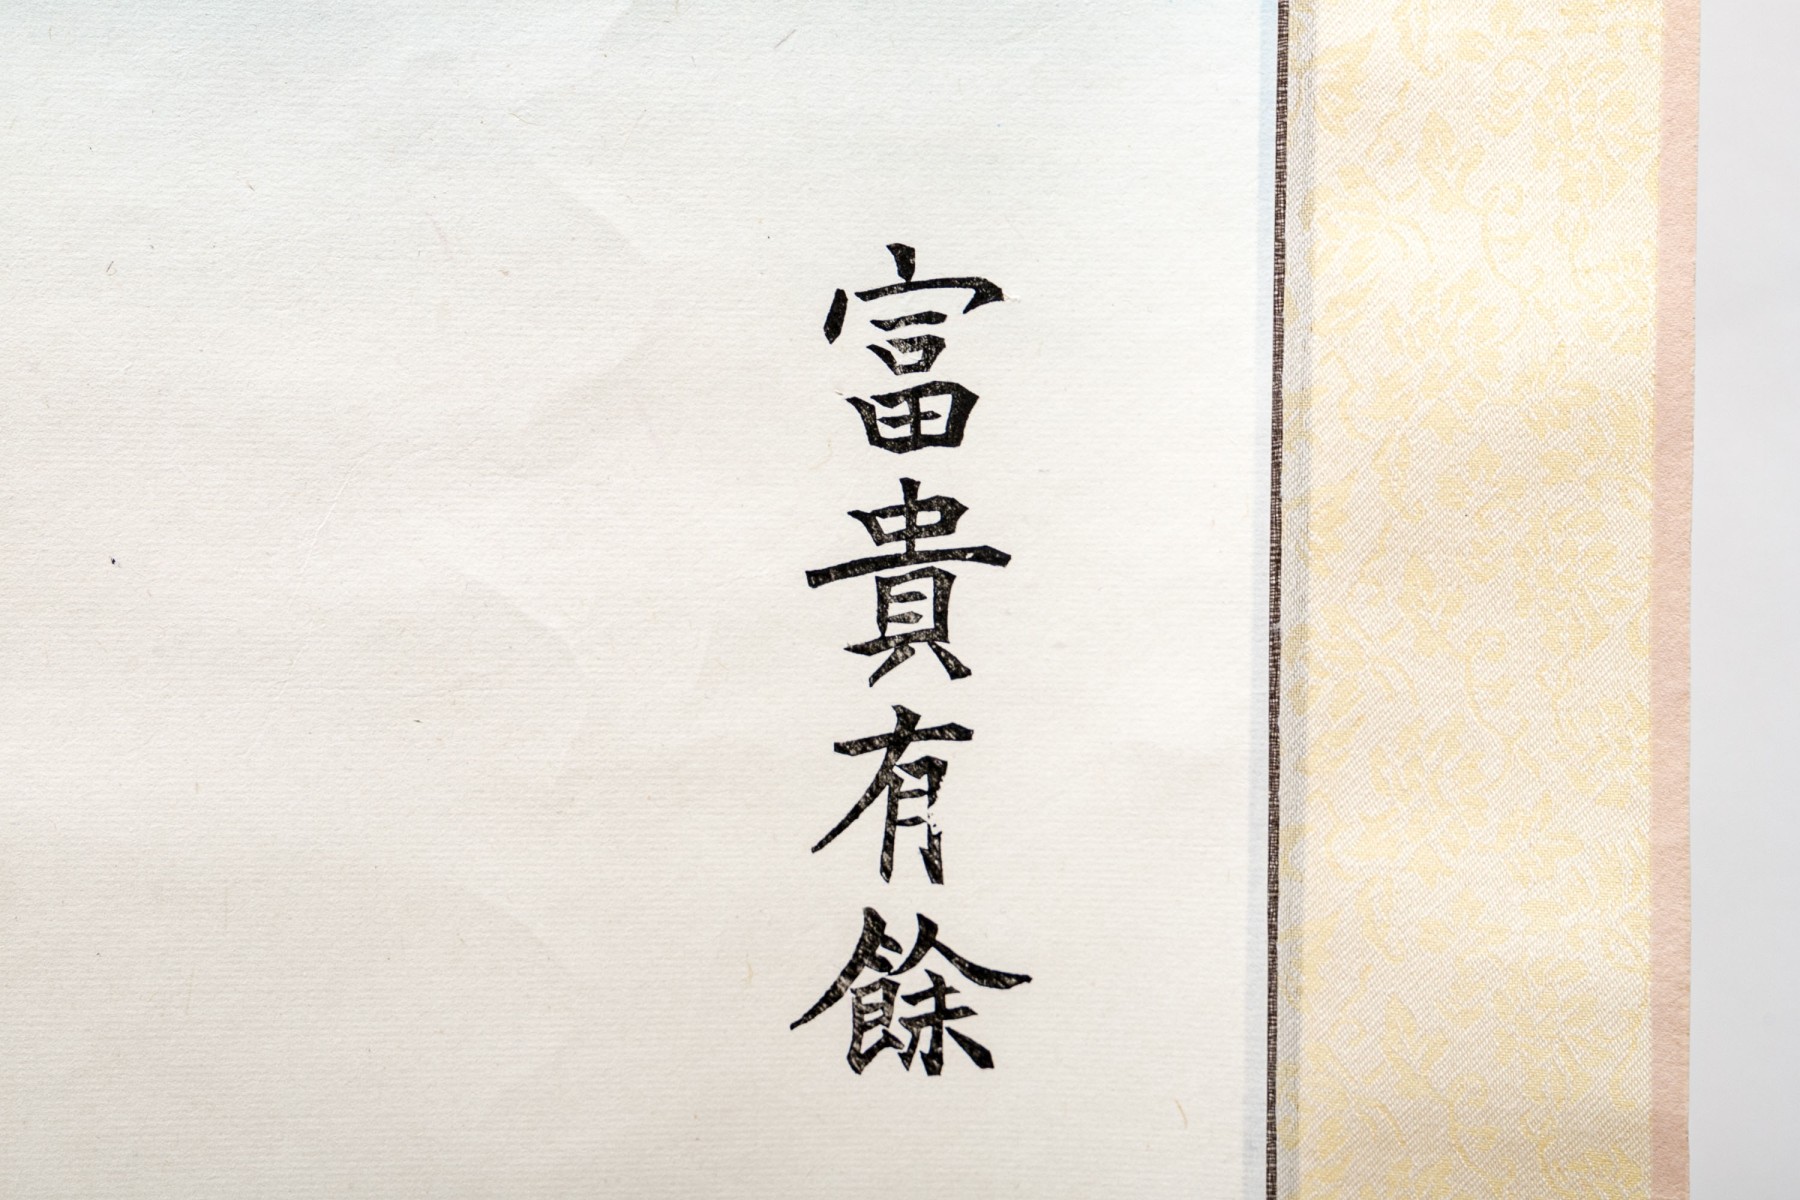 富貴有餘